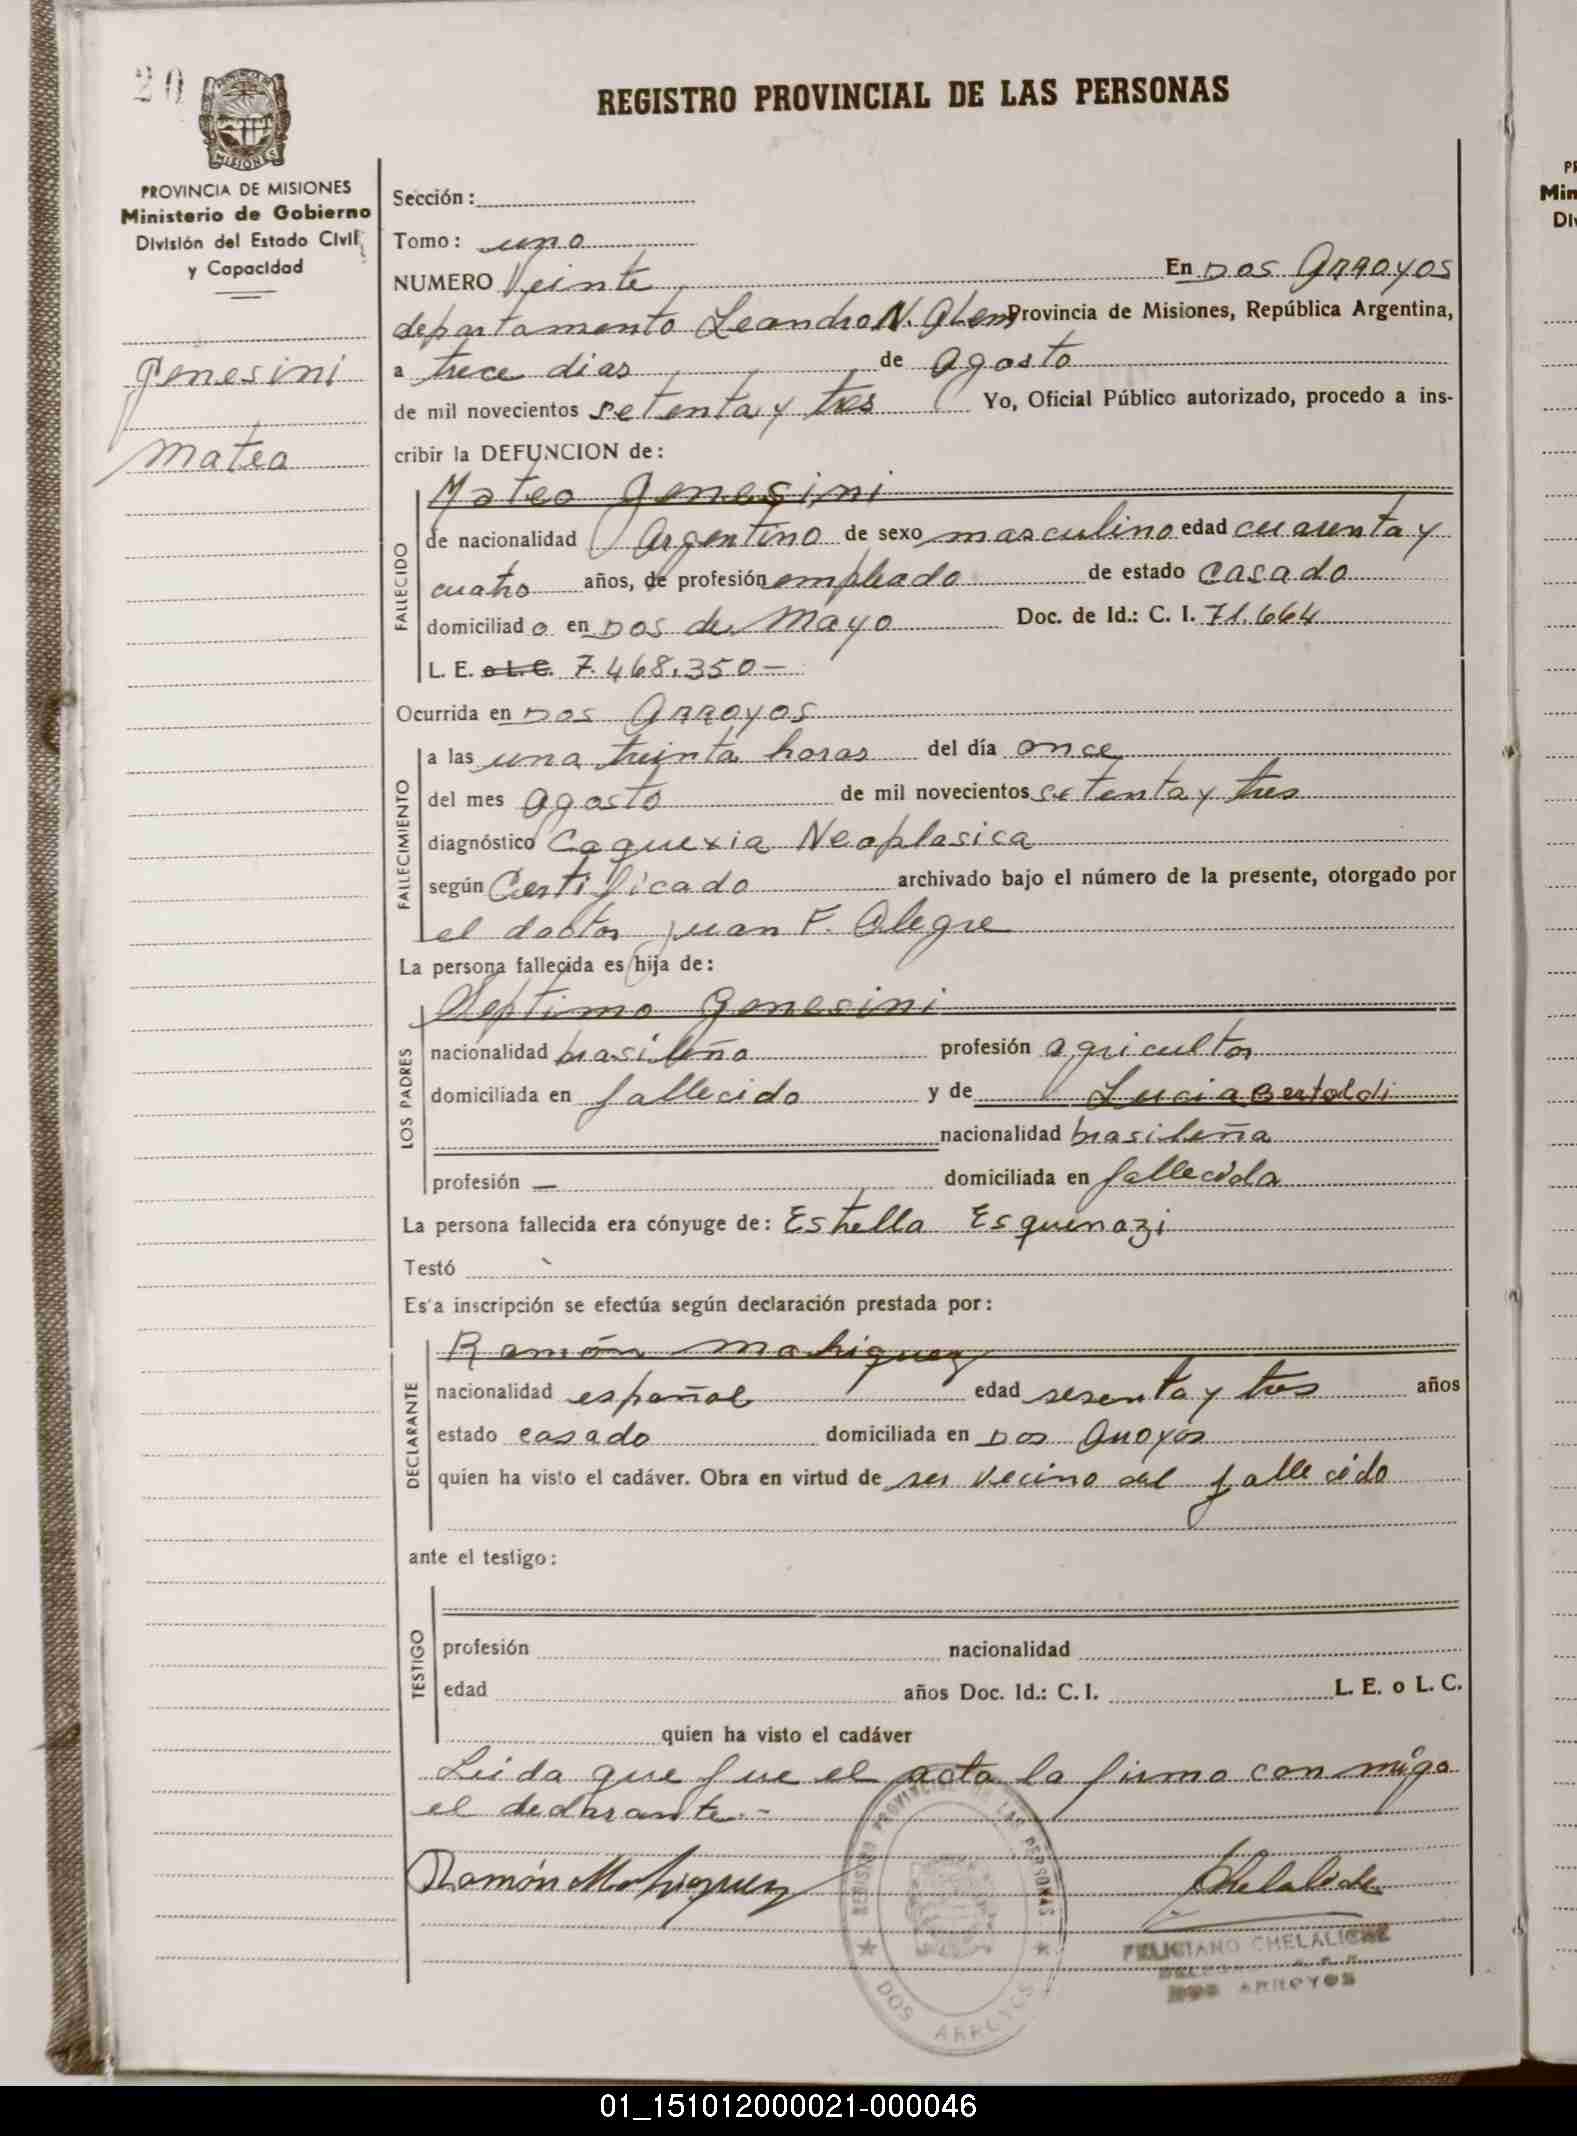 20
PROVINCIA DE MISIONES
MISIONES
PROVINCIA DE MISIONES
Ministerio de Gobierno
División del Estado Civil
y Capacidad
Genesini
Mateo
REGISTRO PROVINCIAL DE LAS PERSONAS
Sección:
Tomo: uno
NUMERO Veinte En Dos Arroyos
departamento Leandro N. Alem Provincia de Misiones, República Argentina,
a trece dias de Agosto
de mil novecientos setenta y tres Yo, Oficial Público autorizado, procedo a ins-
cribir la DEFUNCION de:
FALLECIDO
Mateo Genesini
de nacionalidad Argentino de sexo masculino edad cuarenta y
cuatro años, de profesión empleado de estado casado
domiciliado en Dos de Mayo Doc. de Id.: C. I. 71.664
L. E. o L.C. 7.468.350-
Ocurrida en Dos Arroyos
FALLECIMIENTO
a las una treinta horas del día once
del mes Agosto de mil novecientos setenta y tres
diagnóstico Caquexia Neoplasica
según Certificado archivado bajo el número de la presente, otorgado por
el doctor Juan F. Alegre
La persona fallecida es hija de:
LOS PADRES
Septimo Genesini
nacionalidad brasileña profesión agricultor
domiciliada en fallecido y de Lucia Bertoldi
nacionalidad brasileña
profesión — domiciliada en fallecida
La persona fallecida era cónyuge de: Estrella Esquenazi
Testó
Es'a inscripción se efectúa según declaración prestada por:
DECLARANTE
Ramón
nacionalidad español edad sesenta y tres años
estado casado domiciliada en Dos Arroyos
quien ha visto el cadáver. Obra en virtud de ser vecino del fallecido
ante el testigo:
TESTIGO
profesión nacionalidad
edad años Doc. Id.: C. I. L. E. o L. C.
quien ha visto el cadáver
Leida que fue el acta la firma con migo
el declarante.-
Ramón
Chelaliche
REGISTRO PROVINCIAL DE LAS PERSONAS
DOS ARROYOS
FELICIANO CHELALICHE
DOS ARROYOS
PR
Min
Div
01_151012000021-000046